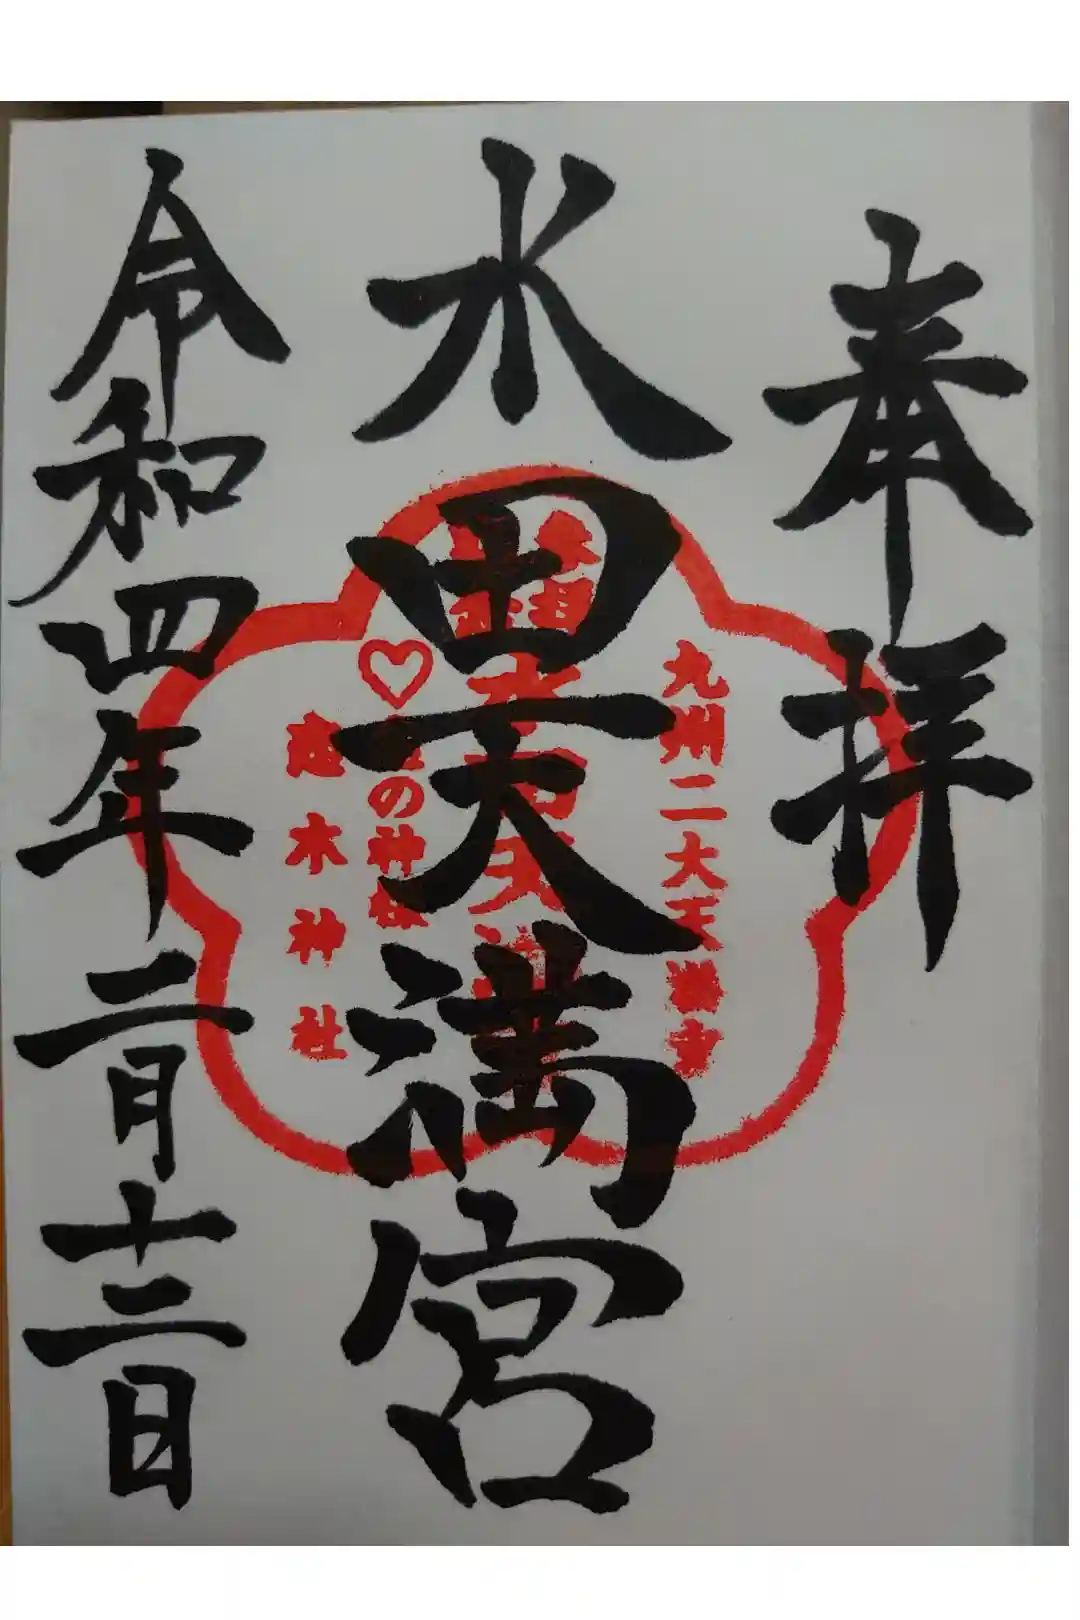 奉拝
九州二大天満宮
水田天満宮
の神様
恋木神社
令和四年二月十二日